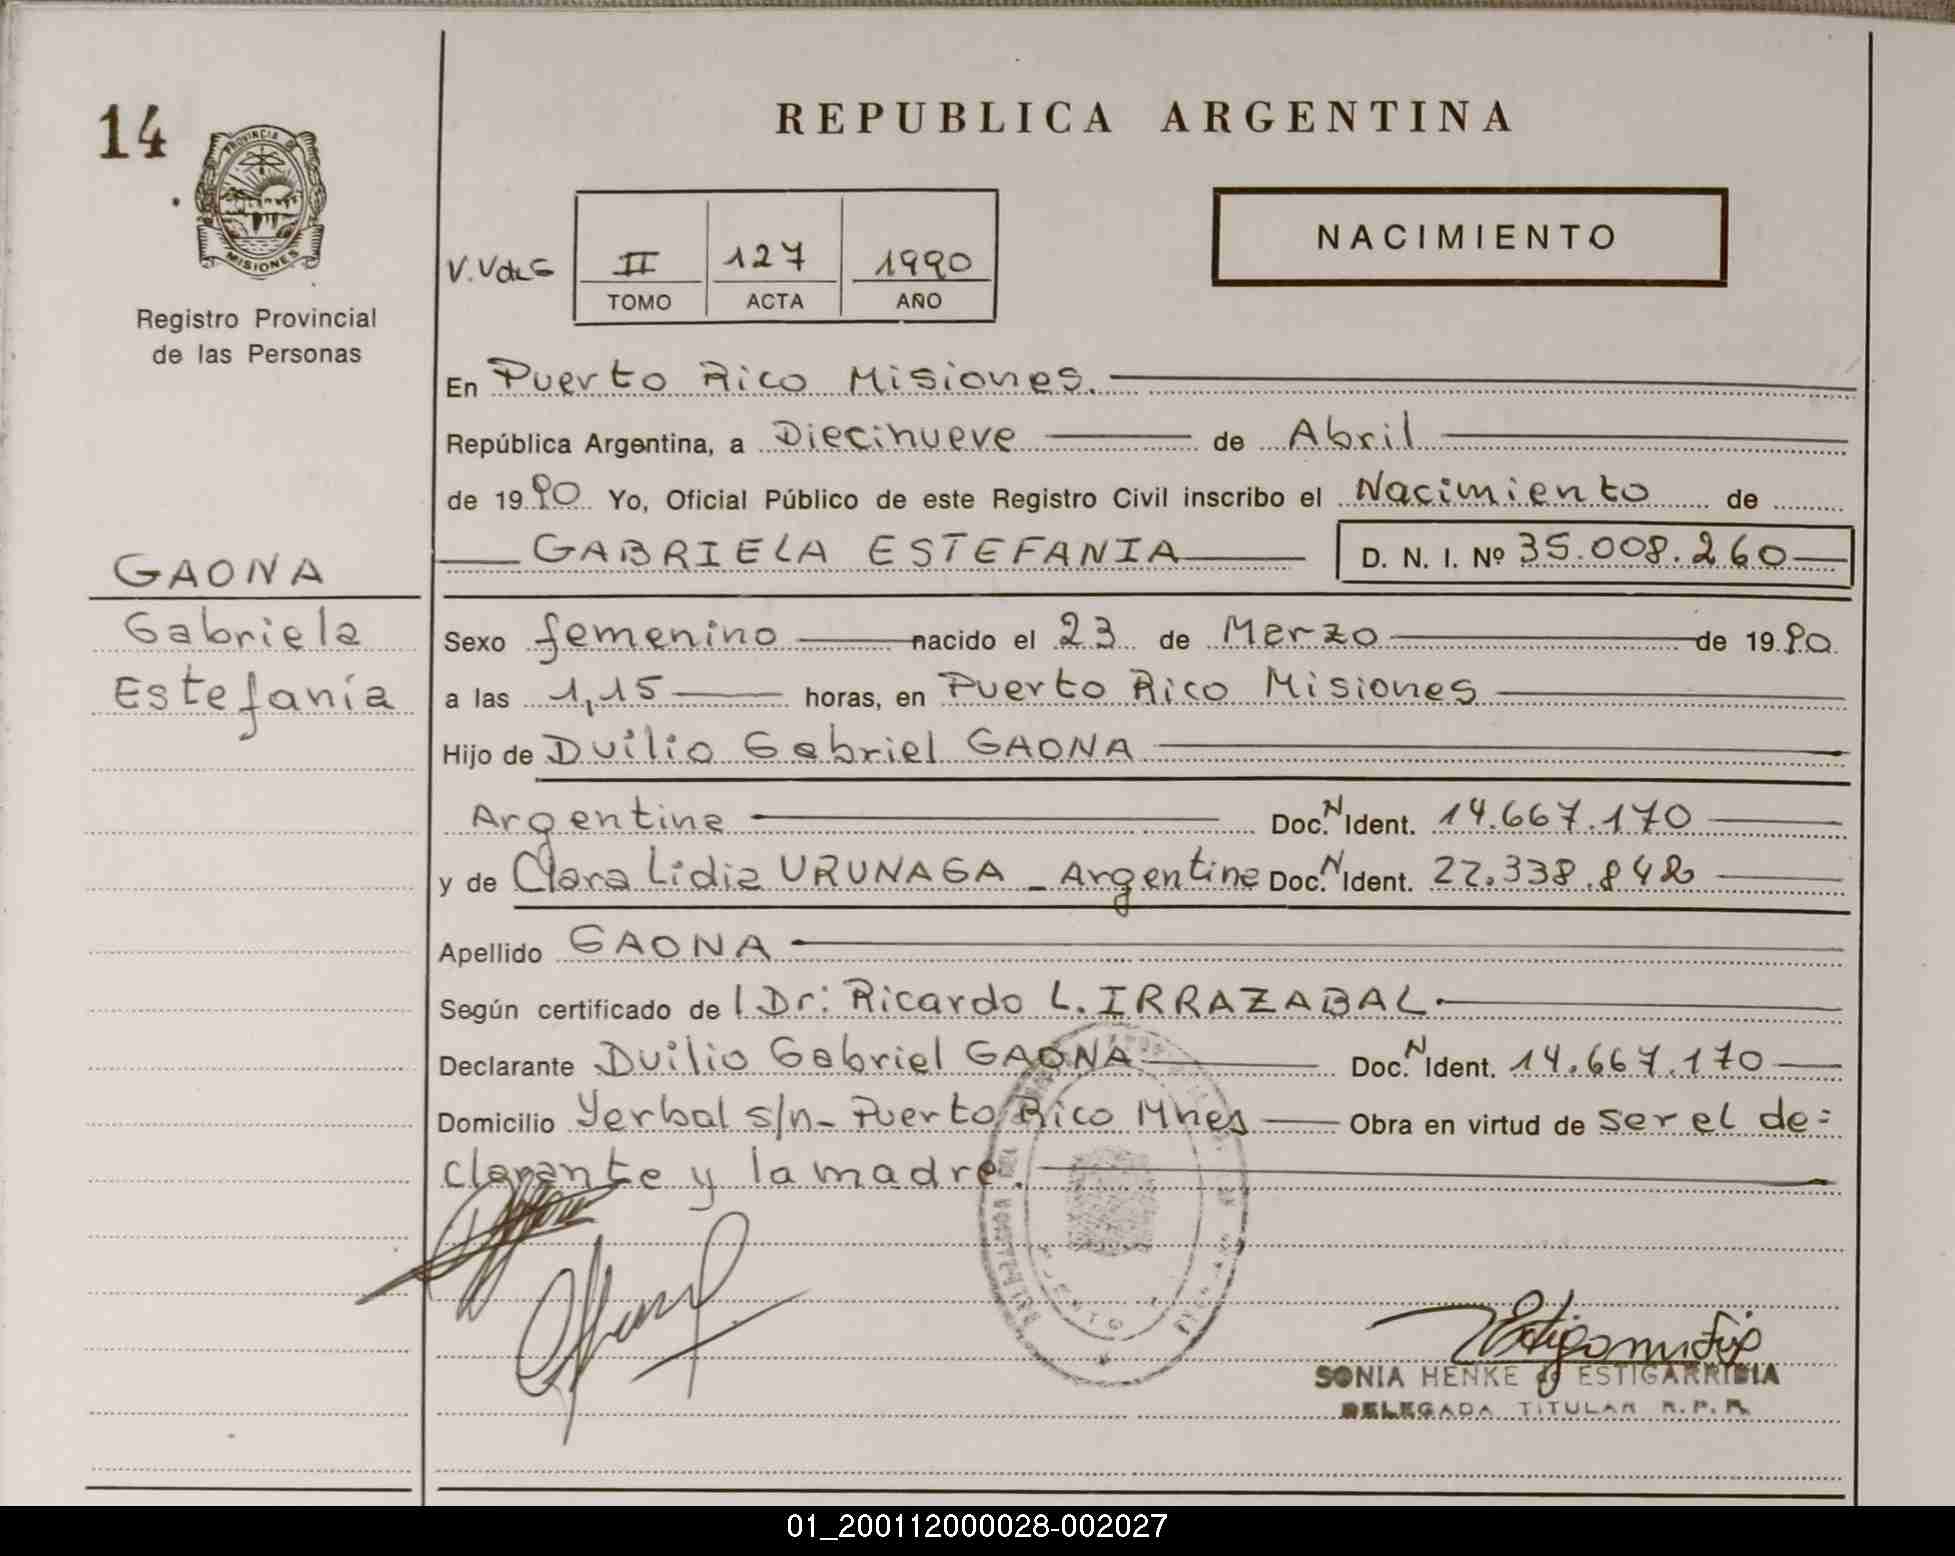 14
PROVINCIA DE
MISIONES
Registro Provincial
de las Personas
GAONA
Gabriela
Estefanía
REPUBLICA ARGENTINA
V.V de G II 127 1990
TOMO ACTA AÑO
NACIMIENTO
En Puerto Rico Misiones.
República Argentina, a Diecinueve de Abril
de 1990 Yo, Oficial Público de este Registro Civil inscribo el Nacimiento de
GABRIELA ESTEFANIA D. N. I. Nº 35.008.260
Sexo femenino nacido el 23 de Marzo de 1990
a las 1,15 horas, en Puerto Rico Misiones
Hijo de Duilio Gabriel GAONA
Argentina Doc. N Ident. 14.667.170
y de Clara Lidia URUNAGA - Argentina Doc. N Ident. 22.338.842
Apellido GAONA
Según certificado de l Dr: Ricardo L. IRRAZABAL
Declarante Duilio Gabriel GAONA Doc. N Ident. 14.667.170
Domicilio Yerbal s/n- Puerto Rico Mnes Obra en virtud de ser el de=
clarante y la madre.
SONIA HENKE de ESTIGARRIBIA
DELEGADA TITULAR R.P.P.
01_200112000028-002027